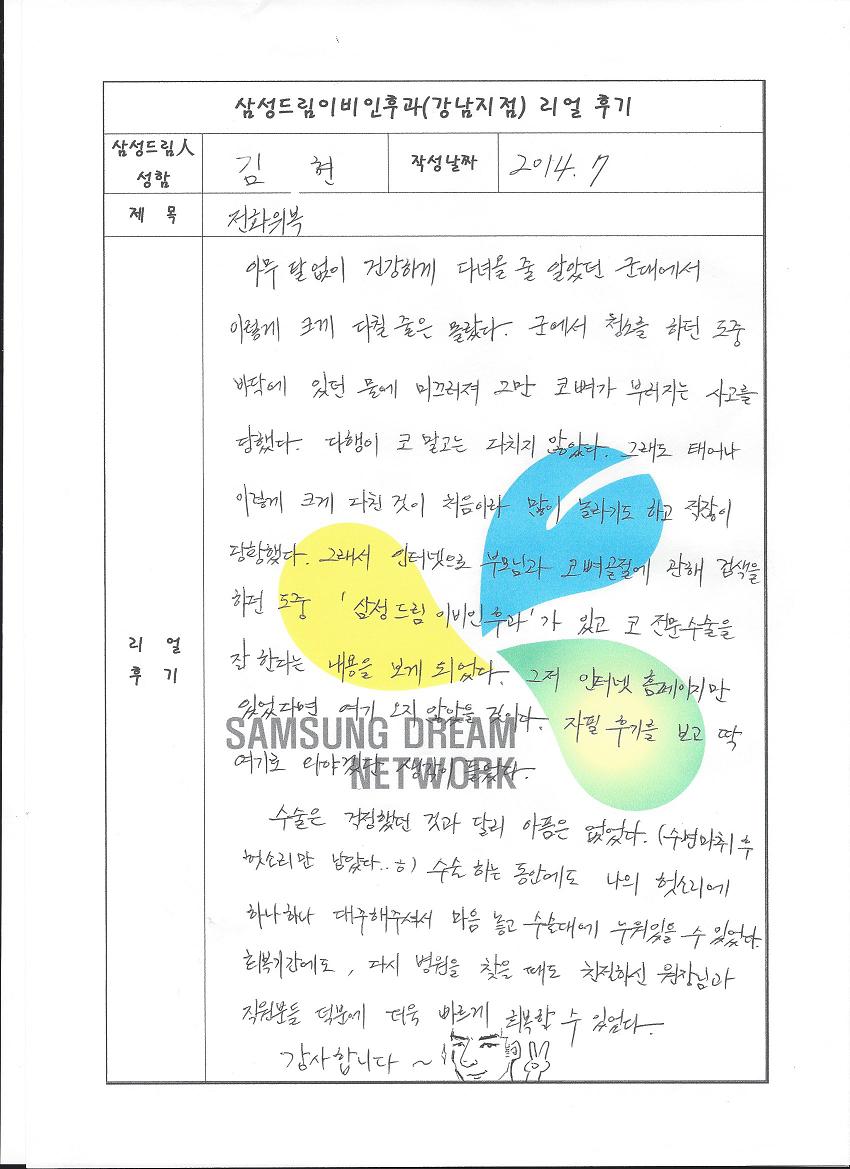 삼성드림이비인후과(강남지점) 리얼 후기
삼성드림人
성함
김 현
작성날짜
2014. 7
제 목
전화위복
리 얼
후 기
아무 탈 없이 건강하게 다녀올 줄 알았던 군대에서
이렇게 크게 다칠 줄은 몰랐다. 군에서 청소를 하던 도중
바닥에 있던 물에 미끄러져 그만 코뼈가 부러지는 사고를
당했다. 다행이 코 말고는 다치지 않았다. 그래도 태어나
이렇게 크게 다친 것이 처음이라 많이 놀라기도 하고 적잖이
당황했다. 그래서 인터넷으로 부모님과 코뼈골절에 관해 검색을
하던 도중 '삼성드림이비인후과'가 있고 코 전문수술을
잘 한다는 내용을 보게 되었다. 그저 인터넷 홈페이지만
있었다면 여기 오지 않았을 것이다. 자필 후기를 보고 딱
여기로 와야겠단 생각이 들었다.
SAMSUNG DREAM
NETWORK
수술은 걱정했던 것과 달리 아픔은 없었다. (수면마취 후
헛소리만 남았다..ㅎ) 수술 하는 동안에도 나의 헛소리에
하나하나 대꾸해주셔서 마음 놓고 수술대에 누워있을 수 있었다.
회복기간에도, 다시 병원을 찾을 때도 친절하신 원장님과
직원분들 덕분에 더욱 빠르게 회복할 수 있었다.
감사합니다 ~